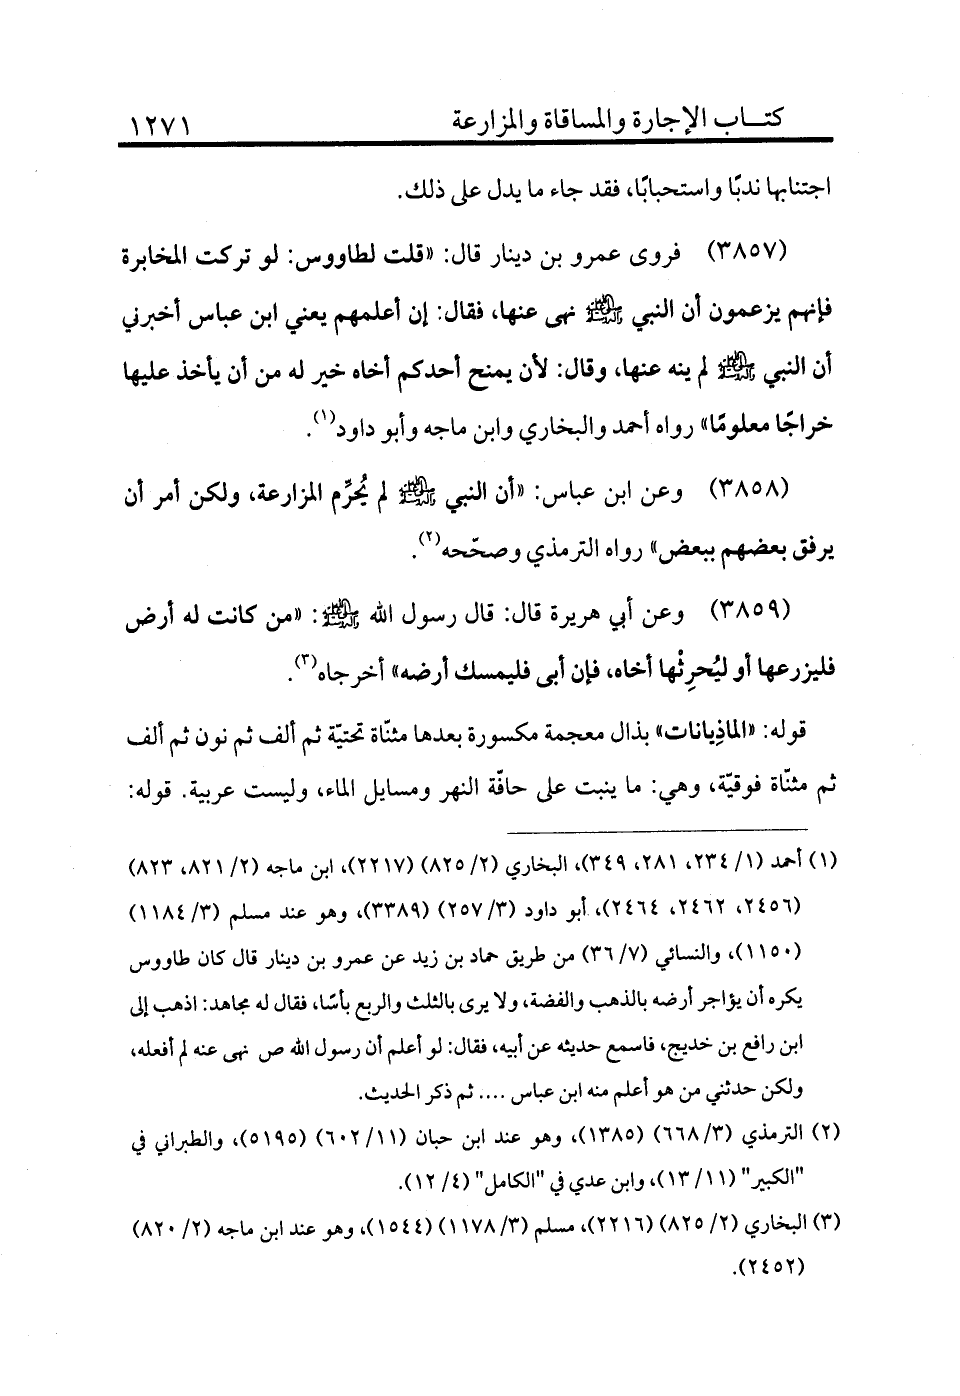 كتاب الإجارة والمساقاة والمزارعة ١٢٧١
اجتنابها ندبًا واستحبابًا، فقد جاء ما يدل على ذلك.
(٣٨٥٧) فروى عمرو بن دينار قال: «قلت لطاووس: لو تركت المخابرة
فإنهم يزعمون أن النبي ﷺ نهى عنها، فقال: إن أعلمهم يعني ابن عباس أخبرني
أن النبي ﷺ لم ينه عنها، وقال: لأن يمنح أحدكم أخاه خير له من أن يأخذ عليها
خراجًا معلومًا» رواه أحمد والبخاري وابن ماجه وأبو داود(١).
(٣٨٥٨) وعن ابن عباس: «أن النبي ﷺ لم يُحرِّم المزارعة، ولكن أمر أن
يرفق بعضهم ببعض» رواه الترمذي وصحّحه(٢).
(٣٨٥٩) وعن أبي هريرة قال: قال رسول الله ﷺ: «من كانت له أرض
فليزرعها أو ليُحرِثْها أخاه، فإن أبى فليمسك أرضه» أخرجاه(٣).
قوله: «الماذِيانات» بذال معجمة مكسورة بعدها مثنّاة تحتيّة ثم ألف ثم نون ثم ألف
ثم مثنّاة فوقيّة، وهي: ما ينبت على حافّة النهر ومسايل الماء، وليست عربية. قوله:
(١) أحمد (١/ ٢٣٤، ٢٨١، ٣٤٩)، البخاري (٢/ ٨٢٥) (٢٢١٧)، ابن ماجه (٢/ ٨٢١، ٨٢٣)
(٢٤٥٦، ٢٤٦٢، ٢٤٦٤)، أبو داود (٣/ ٢٥٧) (٣٣٨٩)، وهو عند مسلم (٣/ ١١٨٤)
(١١٥٠)، والنسائي (٧/ ٣٦) من طريق حماد بن زيد عن عمرو بن دينار قال كان طاووس
يكره أن يؤاجر أرضه بالذهب والفضة، ولا يرى بالثلث والربع بأسًا، فقال له مجاهد: اذهب إلى
ابن رافع بن خديج، فاسمع حديثه عن أبيه، فقال: لو أعلم أن رسول الله ص نهى عنه لم أفعله،
ولكن حدثني من هو أعلم منه ابن عباس .... ثم ذكر الحديث.
(٢) الترمذي (٣/ ٦٦٨) (١٣٨٥)، وهو عند ابن حبان (١١/ ٦٠٢) (٥١٩٥)، والطبراني في
"الكبير" (١١/ ١٣)، وابن عدي في "الكامل" (٤/ ١٢).
(٣) البخاري (٢/ ٨٢٥) (٢٢١٦)، مسلم (٣/ ١١٧٨) (١٥٤٤)، وهو عند ابن ماجه (٢/ ٨٢٠)
(٢٤٥٢).